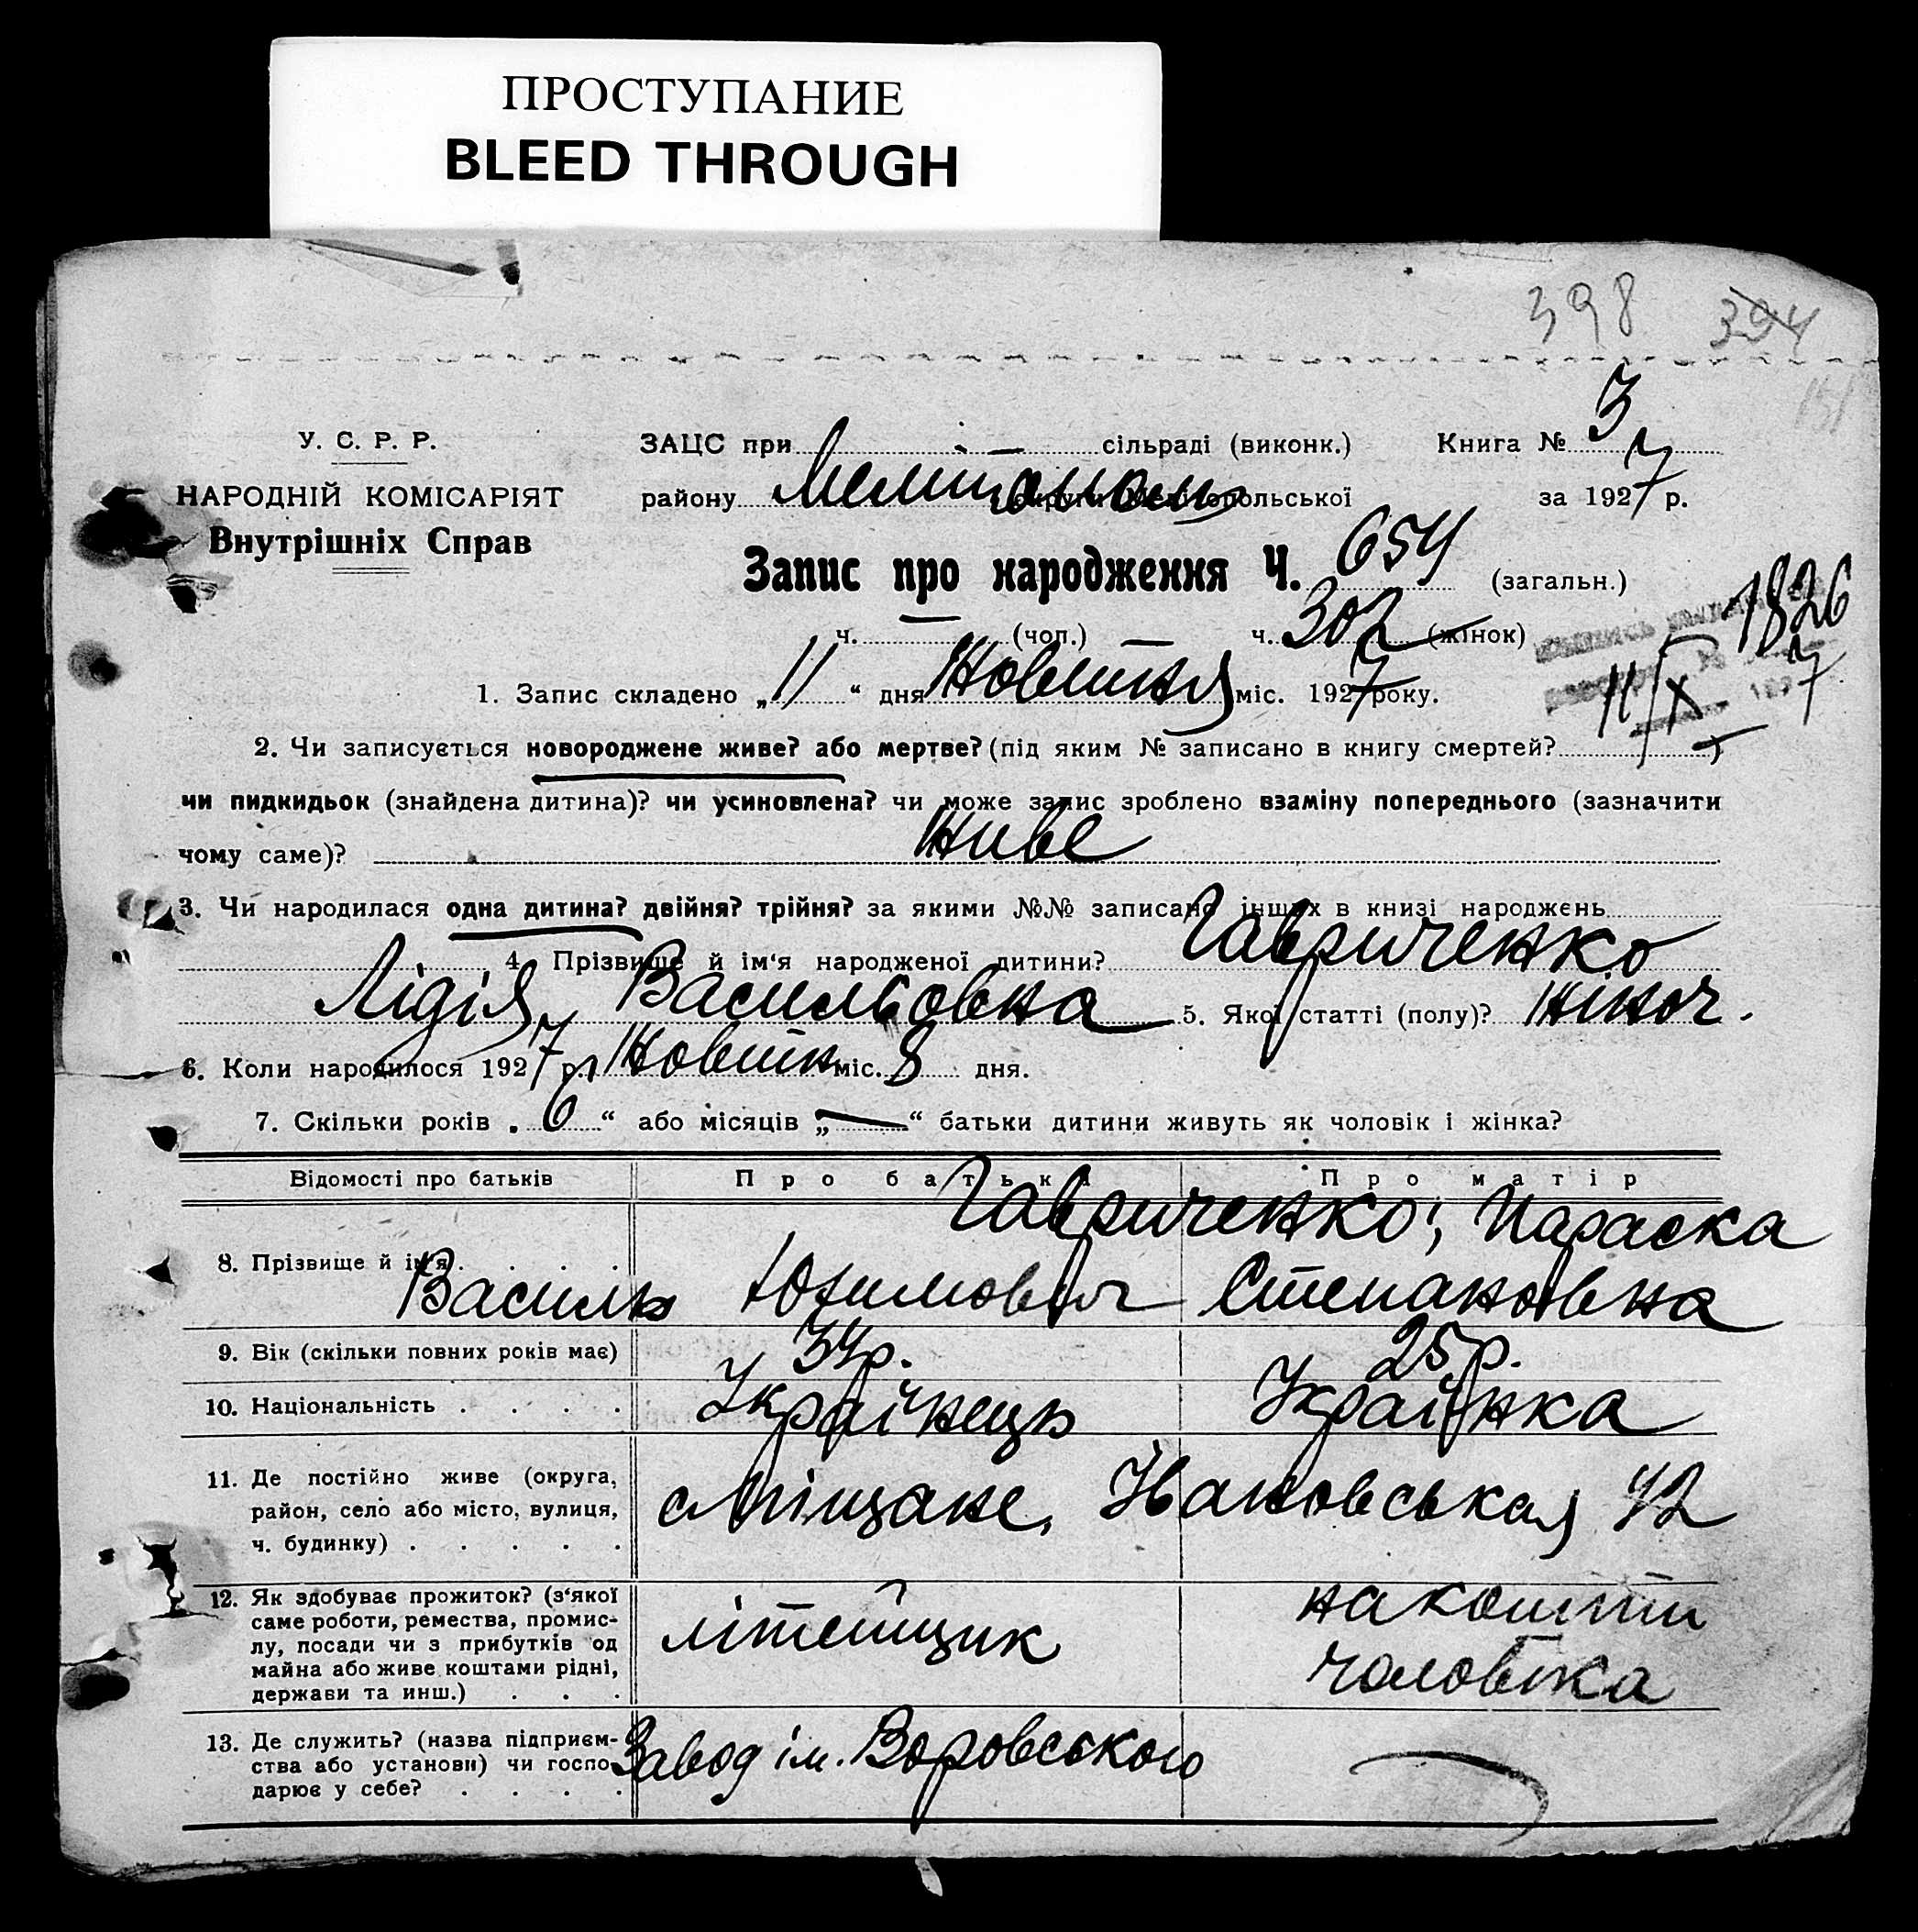 ПРОСТУПАНИЕ
BLEED THROUGH
398 394
У. С. Р. Р.
НАРОДНІЙ КОМІСАРІЯТ
Внутрішніх Справ
ЗАЦС при — сільраді (виконк.) Книга № 3
району округи Мелітопольської за 1927 р.
Запис про народження Ч. 654 (загальн.)
ч. — (чол.) ч. 302 (жінок)
1826
11/X 7
1. Запис складено „11“ дня Жовтня міс. 1927 року.
2. Чи записується новороджене живе? або мертве? (під яким № записано в книгу смертей? )
чи пидкидьок (знайдена дитина)? чи усиновлена? чи може запис зроблено взаміну попереднього (зазначити
чому саме)? Живе
3. Чи народилася одна дитина? двійня? трійня? за якими №№ записано інших в книзі народжень
4. Прізвище й ім'я народженої дитини? Гавриченко
Лідія Васильовна 5. Якої статті (полу)? жіноч.
6. Коли народилося 1927 р. Жовтн міс. 8 дня.
7. Скільки років „6“ або місяців „—“ батьки дитини живуть як чоловік і жінка?
Відомості про батьків Про батька Про матір
8. Прізвище й ім'я Гавриченко; Параска
Василь Юхимович Степановна
9. Вік (скільки повних років має) 34р. 25р.
10. Національність Українець Українка
11. Де постійно живе (округа,
район, село або місто, вулиця,
ч. будинку) 42
12. Як здобуває прожиток? (з'якої
саме роботи, ремества, промис-
лу, посади чи з прибутків од
майна або живе коштами рідні,
держави та инш.) літейщик на кошти
чоловіка
13. Де служить? (назва підприєм-
ства або установи) чи госпо-
дарює у себе? Завод ім. Воровського